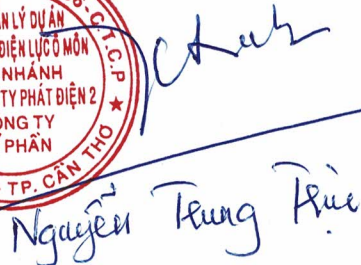 C.T.C.P
N LÝ DỰ ÁN
ĐIỆN LỰC Ô MÔN
NHÁNH
TY PHÁT ĐIỆN 2
NG TY
PHẦN
TP. CẦN THƠ
Nguyễn Trung